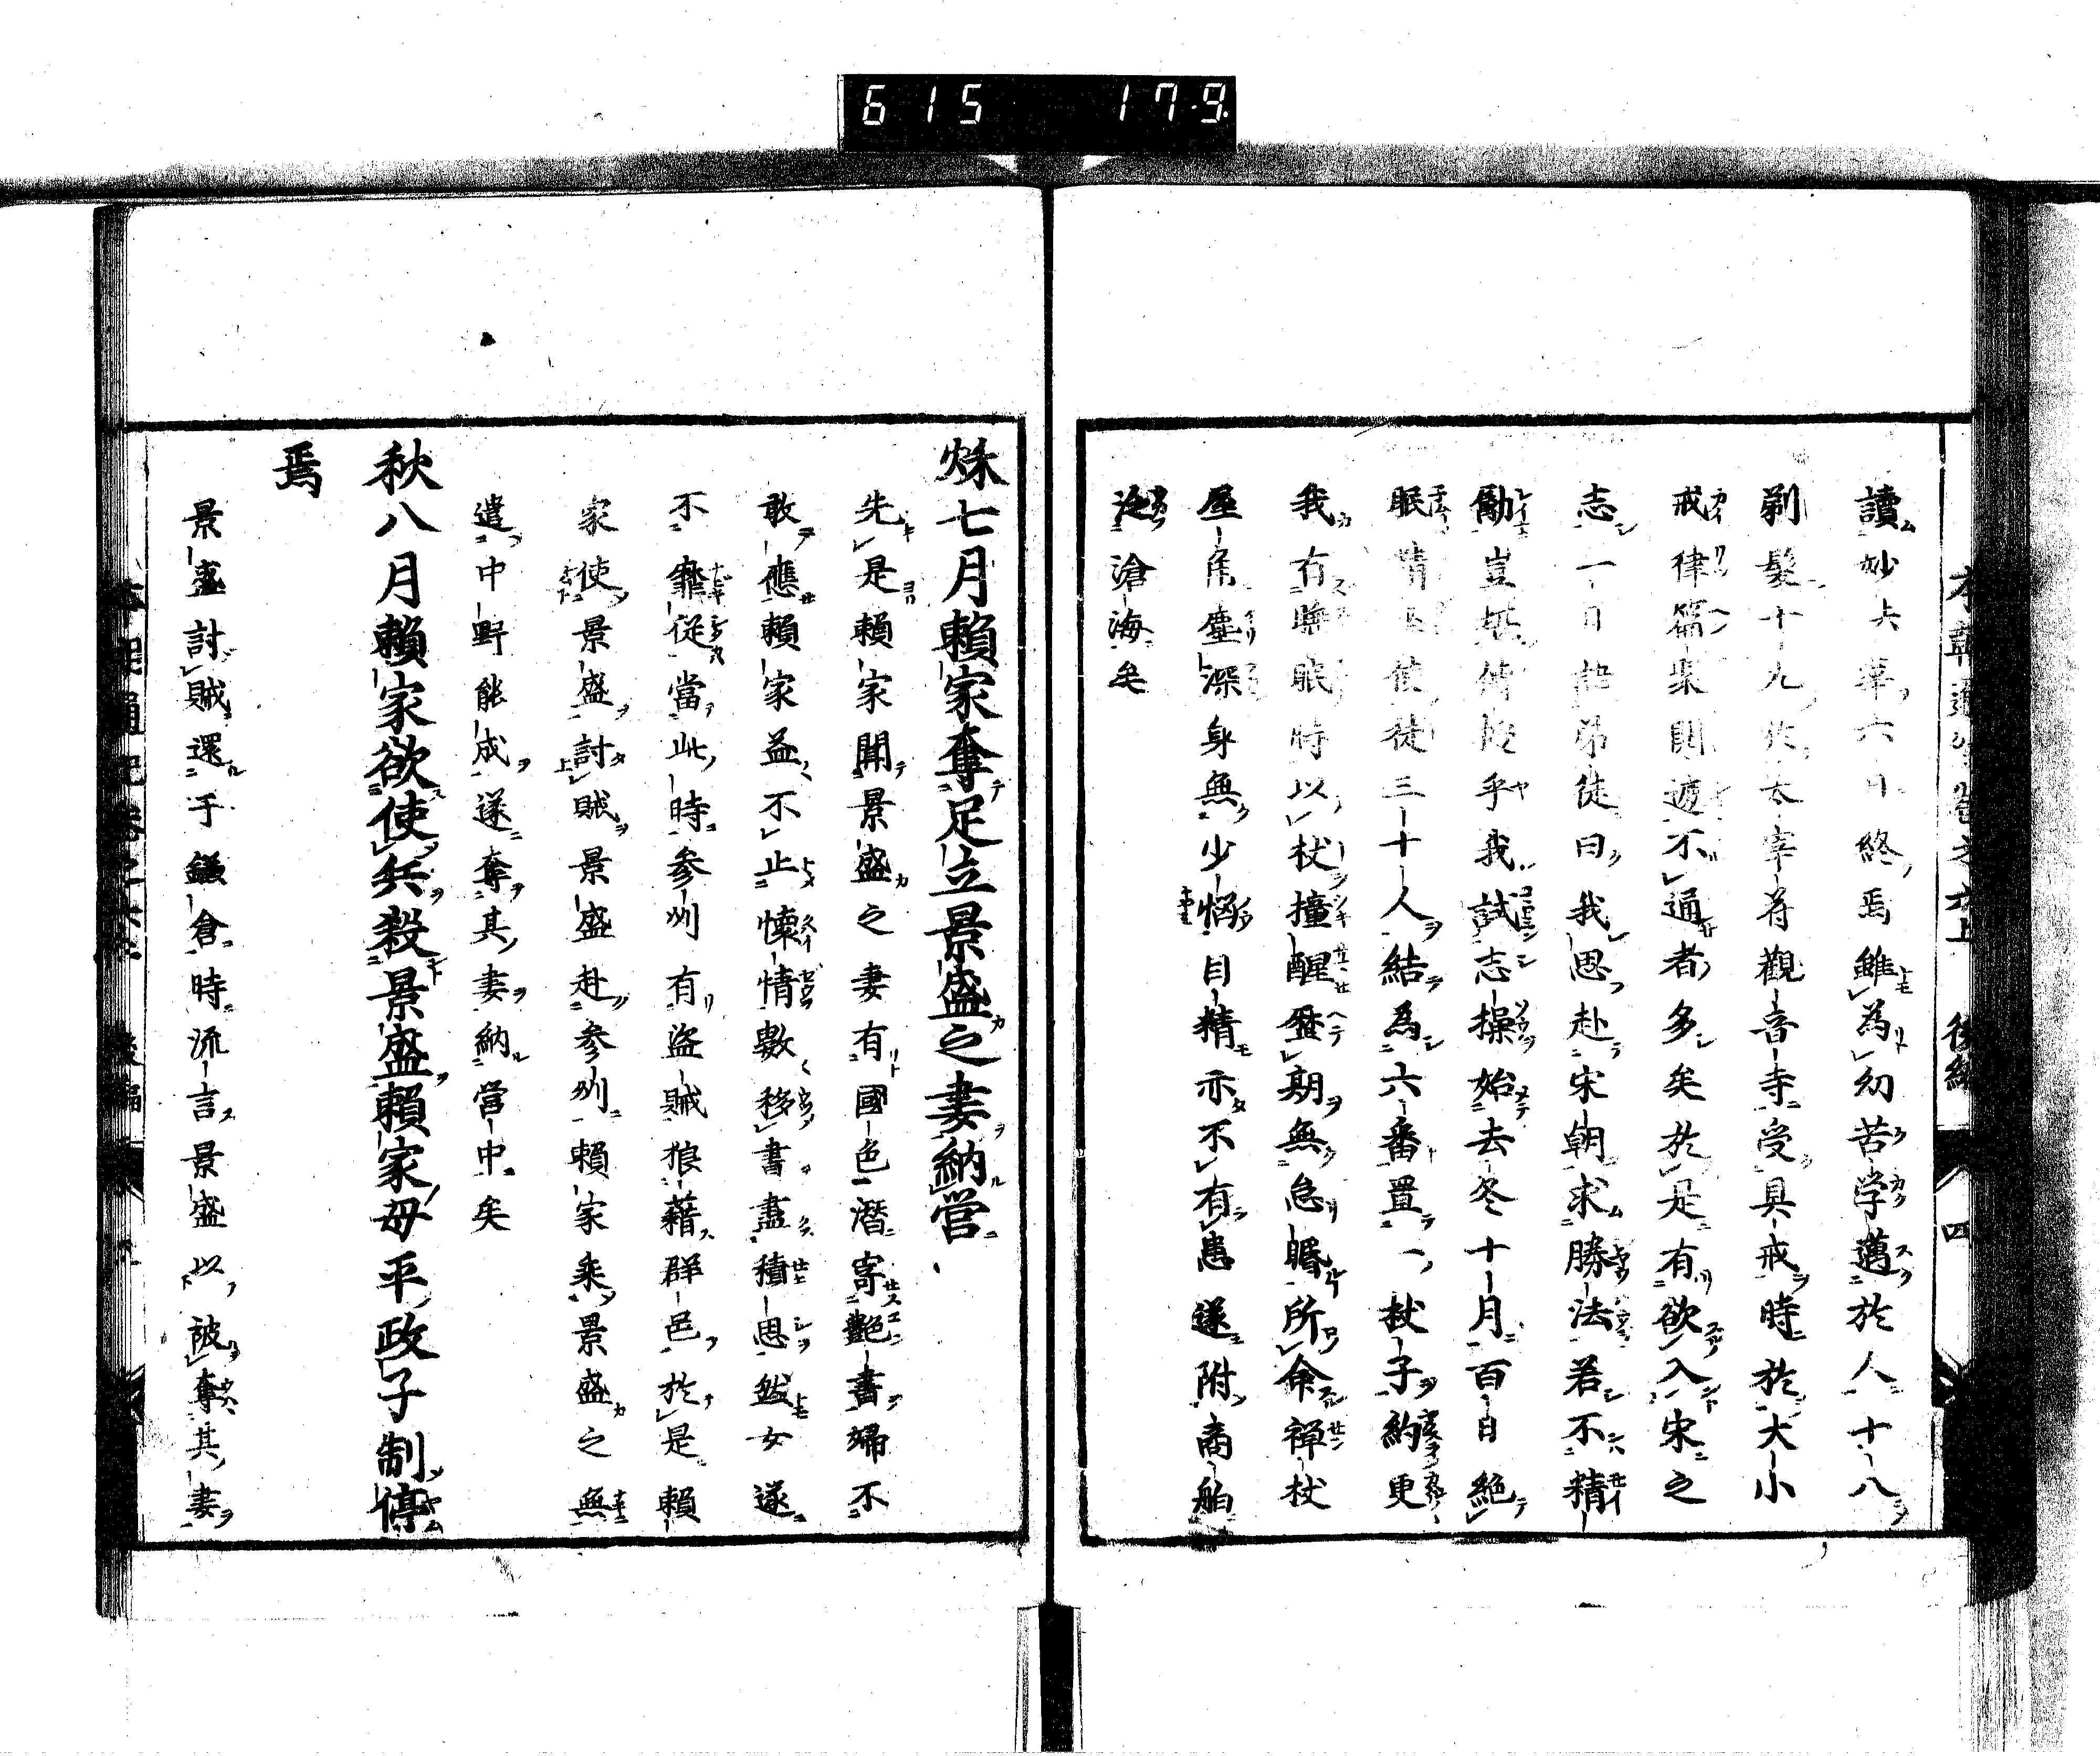 615 179.
讀妙法華六日終焉雖為幼苦学邁於人十八
剃髮十九於太宰府觀音寺受具戒時於大小
戒律篇聚開遮不通者多矣於是有欲入宋之
志一日語弟徒曰我思赴宋朝求勝法若不精
勵豈堪傳授乎我試志操始去冬十月百日絶
眠 使徒三十人結為六番置一杖子約更
我有睡眠時以杖撞醒歷期無怠睡所命禪杖
屋角塵深身無少惱目精亦不有恙遂附商舶
泛滄海矣
秌七月賴家奪足立景盛之妻納営
先是賴家聞景盛之妻有國色潛寄艶書婦不
敢應賴家益不止懐情數移書盡積思然女遂
不靡從當此時参州有盗賊狼藉群邑於是賴
家使景盛討賊景盛赴参州賴家乘景盛之無
遣中野能成遂奪其妻納営中矣
秋八月賴家欲使兵殺景盛賴家母平政子制停
焉
景盛討賊還于鎌倉時流言景盛以被奪其妻